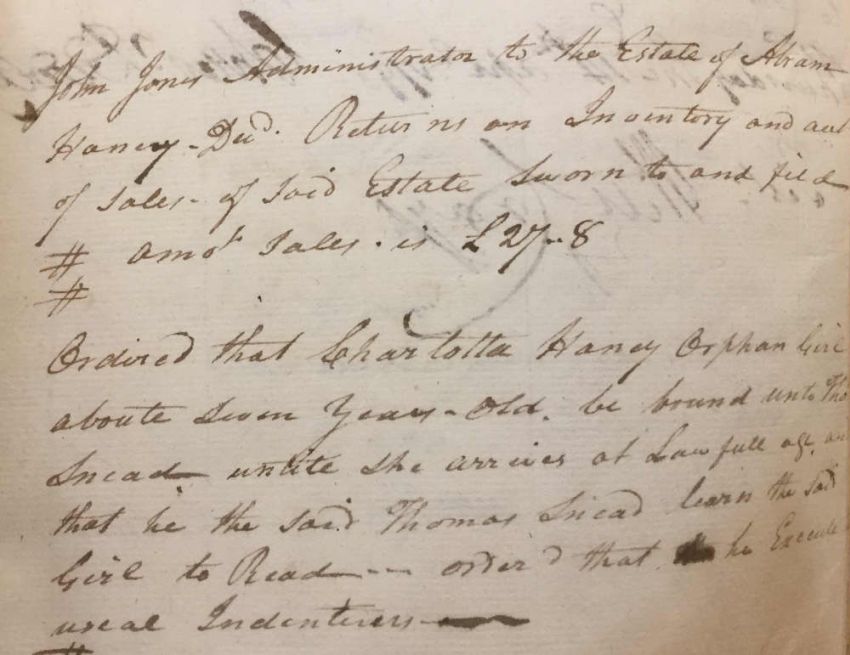 John Jones Administrator to the Estate of Abram
Haney - Decd. Returns an Inventory and act
of sales - of said Estate Sworn to and filed
# amot sales . is £27..8
#
Ordired that Charlotta Haney Orphan Girl
aboute Seven Years - Old. be bound unto Tho
Snead untile she arrives at Lawfull age. an
that he the said Thomas Snead learn the said
Girl to Read -- order'd that he Execute
useal Indenteurs
#